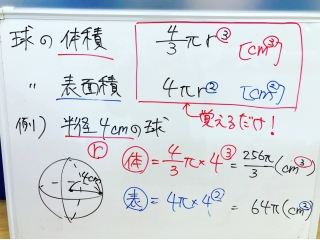 球の体積 4/3 πr³ [cm³]
〃 表面積 4πr² [cm²]
覚えるだけ!
例) 半径4cmの球
r
4cm
体 = 4/3 π × 4³ = 256π/3 (cm³)
表 = 4π × 4² = 64π (cm²)